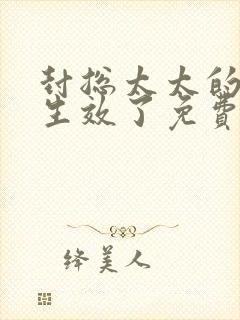 封总太太的
生效了免费
绛美人